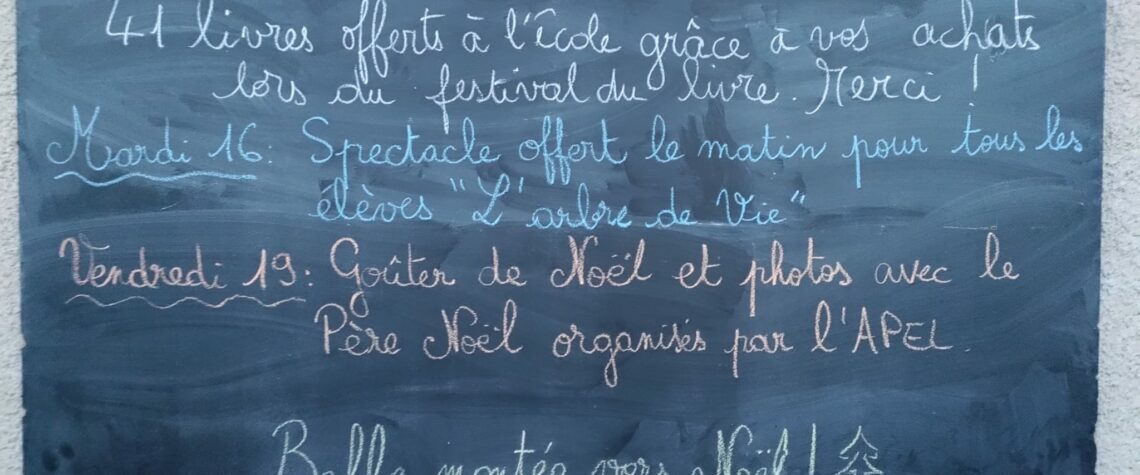 41 livres offerts à l'école grâce à vos achats
lors du festival du livre. Merci !
Mardi 16: Spectacle offert le matin pour tous les
élèves "L'arbre de Vie"
Vendredi 19: Goûter de Noël et photos avec le
Père Noël organisés par l'APEL
Belle montée vers Noël !